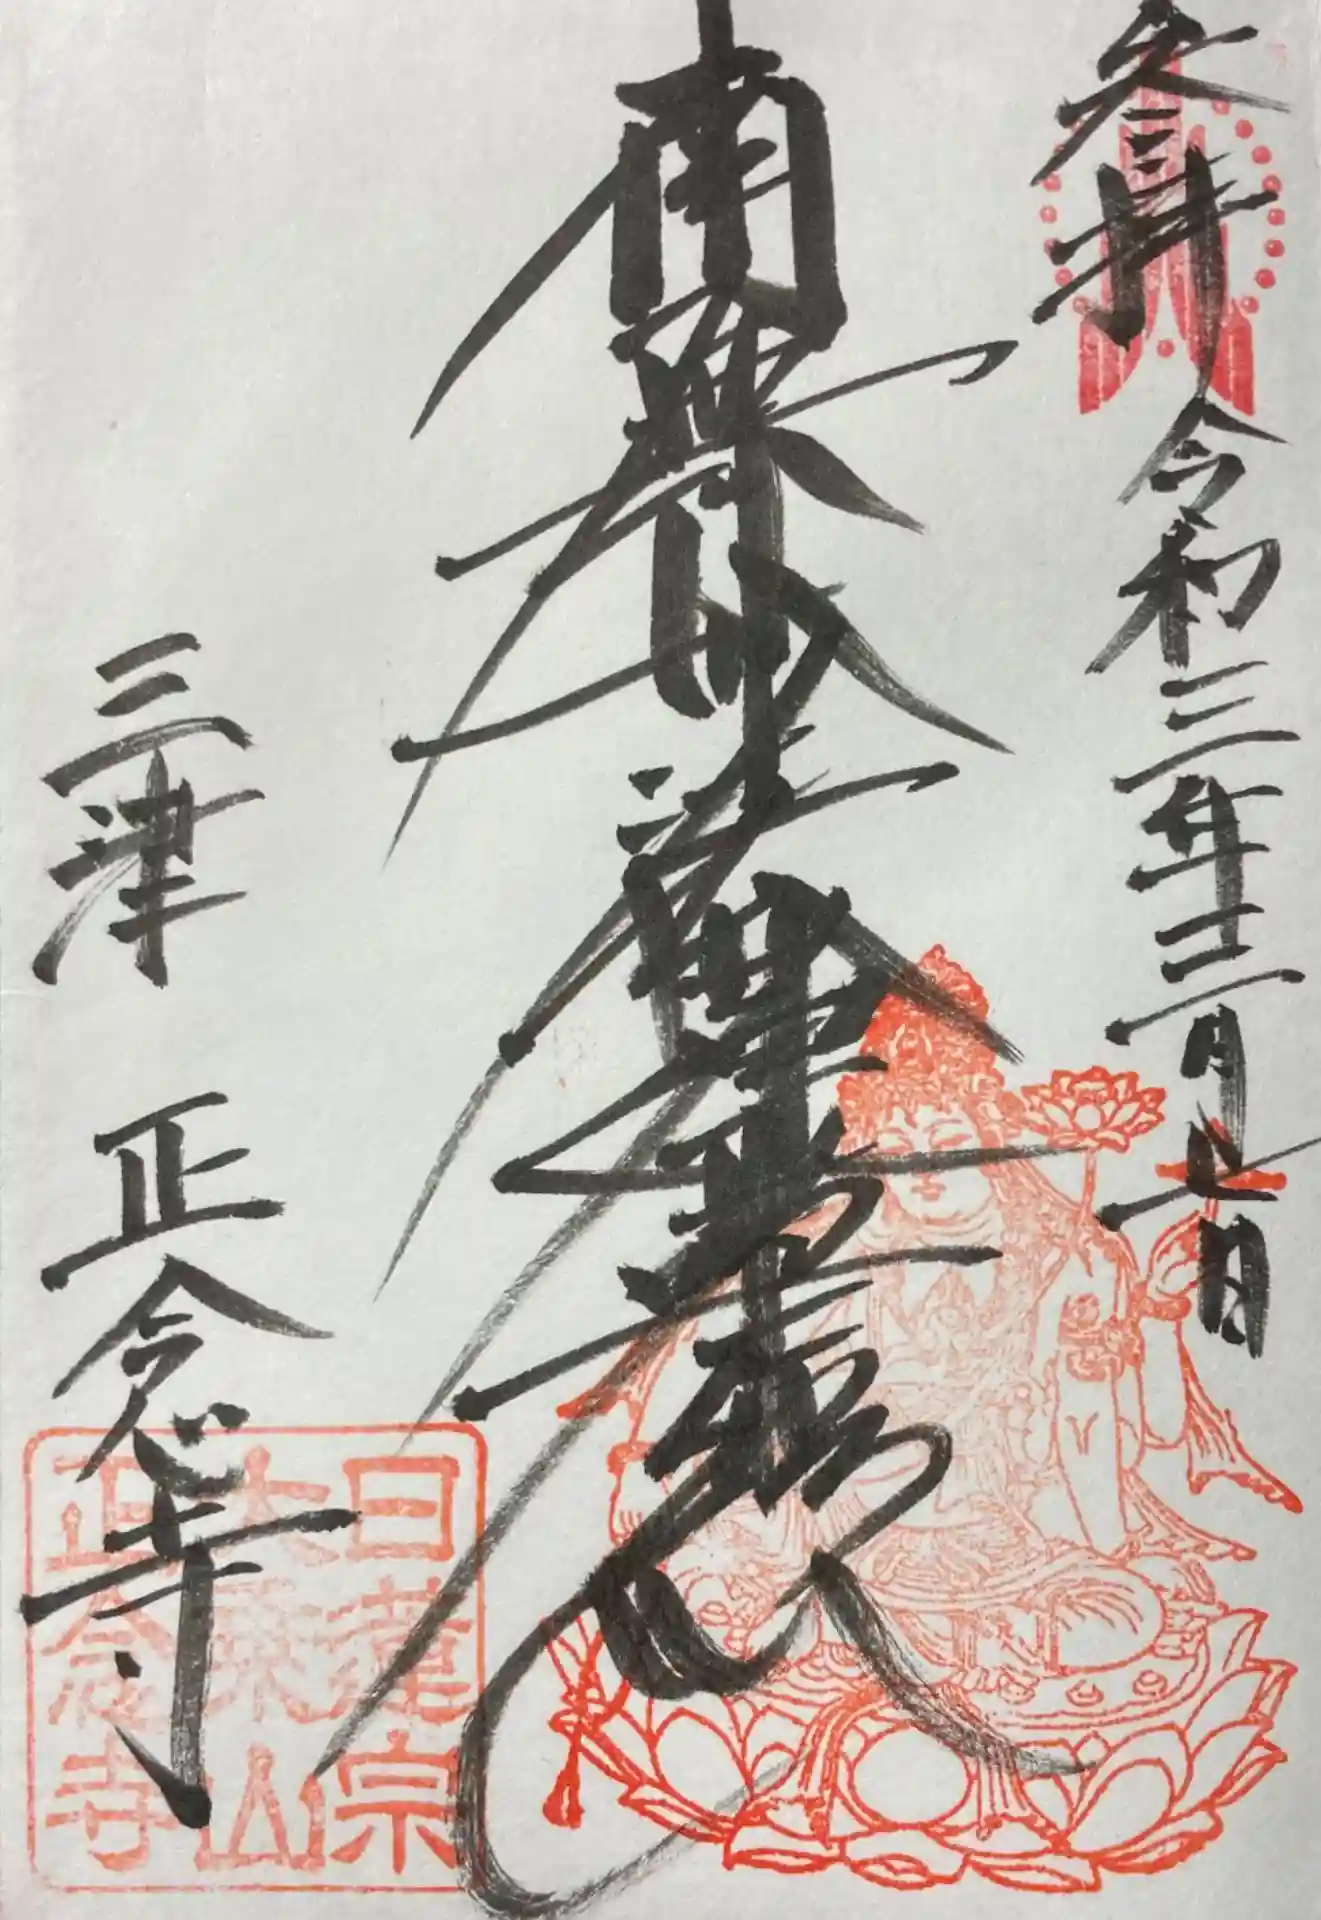 参拝
令和三年十二月七日
南無妙法蓮華経
三津 正念寺
日蓮宗
大乗山
正念寺